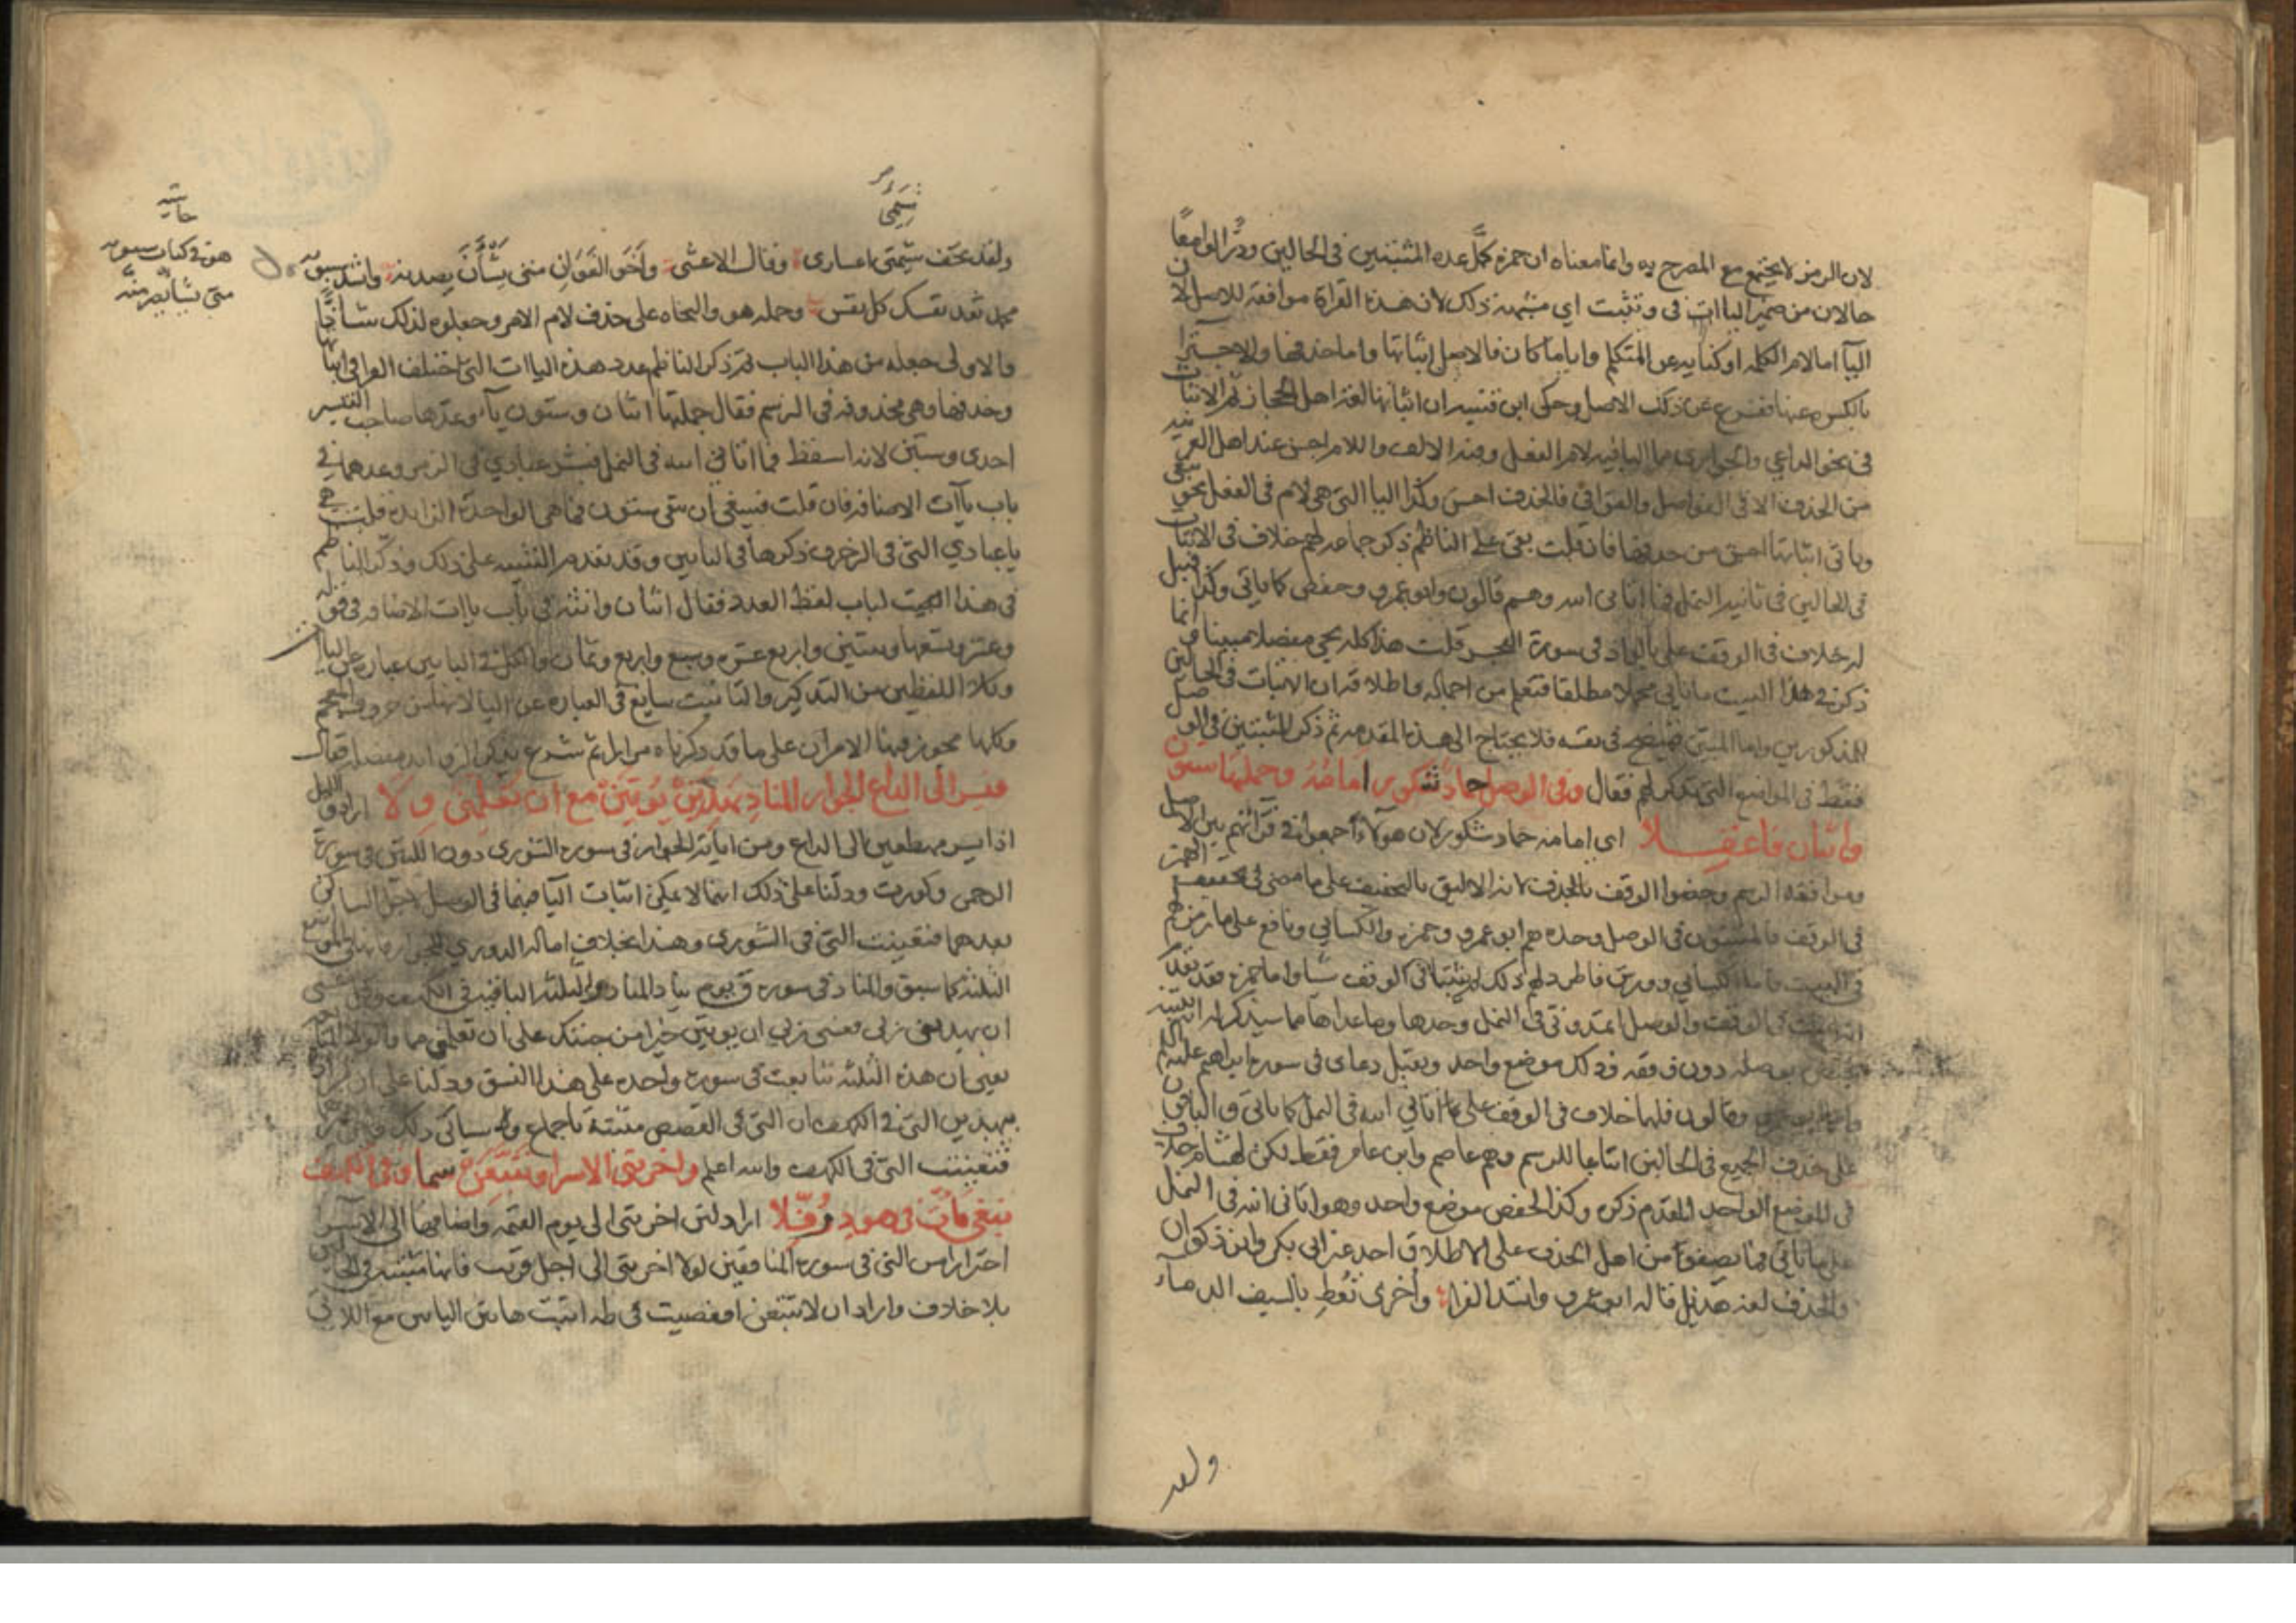 لان الرمز لا يجتمع مع المصرح به وانما معناه ان حمزة كمل عدة المثبتين في الحالين ودرا لوامعا
حالان من ضمير الياات في وتثبت اي مشبهة ذلك لان هذه القراة موافقة للاصل لان
اليآ اما لام الكلمة او كناية عن المتكلم واياما كان فالاصل اثباتها واما حذفها والاجتزا
بالكسر عنها ففرع عن ذلك الاصل وحكى ابن قتيبة ان اثباتها لغة اهل الحجاز ثم الاثبات
في نحو الداعي والجواري مما اليا فيه لام الفعل وفيه الالف واللام احسن عند اهل العربية
من الحذف الا في الفواصل والقوافي فالحذف احسن وكذا اليا التي هي لام في الفعل نحو نبغي
وياتي اثباتها احسن من حذفها فان قلت بقي على الناظم ذكر جماعة لهم خلاف في الاثبات
في الحالين في ثانية النمل فما اتاني الله وهم قالون وابو عمرو وحفص كما ياتي وكذا قنبل
له خلاف في الوقف على بالواد في سورة الفجر قلت هذا كله يجي مفصلا مبينا وانما
ذكر في هذا البيت ما ياتي مجملا مطلقا فتعلم من اجماله واطلاقه ان الاثبات في الحالين
للمذكورين واما المبين فيتضح في نفسه فلا يحتاج الى هذه المقدمة ثم ذكر المثبتين في الوصل
فقط في المواضع التي تذكر لهم فقال وفي الوصل حماد شكور امامه وجملتها ستون
واثنان فاعقلا اي امامه حماد شكور لان هولآء جمعوا في قرآتهم بين الاصل
وموافقة الرسم وخصوا الوقف بالحذف لانه الاليق بالتخفيف على ما مضى في تخفيف الهمز
في الوقف فالمثبتون في الوصل وحده هم ابو عمرو وحمزة والكسائي ونافع على ما رمز لهم
في البيت فاما الكسائي وورش فاطرد لهم ذلك لم يثبتا في الوقف شيا واما حمزة فقد تقدم
انه يثبت في الوقف والوصل اتمدونني في النمل وحدها وما عداها مما سيذكر له
يختص بوصله دون وقفه وذلك موضع واحد وتقبل دعاى في سورة ابراهيم عليه السلام
واما ابو عمرو وقالون فلهما خلاف في الوقف على فما اتاني الله في النمل كما ياتي والباقون
على حذف الجميع في الحالين اتباعا للرسم وهم عاصم وابن عامر فقط لكن لهشام خلاف
في الموضع الواحد المقدم ذكره وكذا لحفص موضع واحد وهو اتاني الله في النمل
على ما ياتي فما يصفوا من اهل الحذف على الاطلاق احد غير ابي بكر وابن ذكوان
والحذف لغة هذيل قاله ابو عمرو وانشد الفرا واخرى تعط بالسيف الدماء
ولقد
ولقد تخف شيمتي اعساري وقال الاعشى واخو الغوان متى يشأن يصرمنه وانشد سيبويه
محمد تفد نفسك كل نفس وحمله هو والنحاه على حذف لام الامر وجعلوه لذلك شاذا
والاولى جعله من هذا الباب ثم ذكر الناظم عدد هذه الياات التي اختلف القرا في اثباتها
وحذفها وهي محذوفة في الرسم فقال جملتها اثنان وستون يآ وعدها صاحب التيسير
احدى وستين لانه اسقط فما اتاني الله في النمل فبشر عبادي في الزمر وعدهما في
باب ياآت الاضافة فان قلت فينبغي ان تبقى ستون فما هي الواحدة الزايدة قلت هي
يا عبادي التي في الزخرف ذكرها في البابين وقد تقدم التنبيه على ذلك وذكر الناظم
في هذا البيت لباب لفظ العدد فقال اثنان وانثه في باب ياات الاضافة في قوله
وعشر وتسعها وثنتين واربع عشرة وسبع واربع وثمان والكل في البابين عبارة عن اليا
وكلا اللفظين من التذكير والتانيث سايغ في العبارة عن اليا لانها من حروف المعجم
وكلها يجوز فيها الامران على ما قد ذكرناه مرا بل ثم شرع يذكر الزوايد مفصلة فقال
فيسرى الى الداع الجوار المناد يهدين يؤتين مع ان تعلمني ولا اراد والليل
اذا يسر مهطعين الى الداع ومن اياته الجوار في سورة الشورى دون اللتين في سورة
الرحمن وكورت ودلنا على ذلك انهما لا يمكن اثبات اليآ فيهما في الوصل لاجل الساكن
بعدهما فتعينت التي في الشورى وهذا بخلاف امالة الدوري للجوار فانها في المواضع
الثلثة كما سبق والمناد في سورة ق يوم يناد المناد والثلثة الباقية في الكهف وقل عسى
ان يهدين ربي فعسى ربي ان يوتين خيرا من جنتك على ان تعلمن مما
يعني ان هذه الثلثة تتابعت في سورة واحدة على هذا النسق ودلنا على ان
يهدين التي في الكهف ان التي في القصص مثبتة باجماع وسياتي ذلك
فتعينت التي في الكهف والله اعلم واخرتني الاسرا وتتبعن سما وفي الكهف
نبغي يات في هود رفلا اراد لئن اخرتني الى يوم القيمة واضافها الى الاسرا
احترازا من التي في سورة المنافقين لولا اخرتني الى اجل قريب فانها مثبتة في الحالين
بلا خلاف واراد ان لا تتبعن افعصيت في طه اثبت هاتين الياين مع
شيمتي
حاشية
هو في كتاب سيبويه
متى يشا يصرمنه